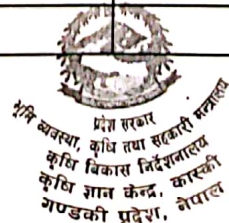 प्रदेश सरकार
भूमि व्यवस्था, कृषि तथा सहकारी मन्त्रालय
कृषि विकास निर्देशनालय
कृषि ज्ञान केन्द्र, कास्की
गण्डकी प्रदेश, नेपाल